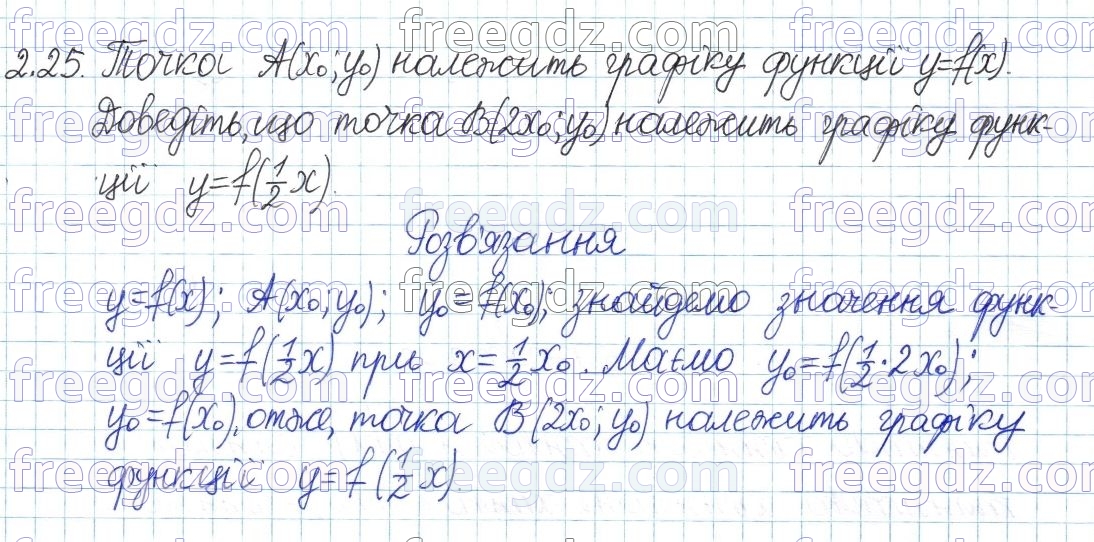 2.25. Точка A(x₀; y₀) належить графіку функції y=f(x).
Доведіть, що точка B(2x₀; y₀) належить графіку функ-
ції y=f(1/2 x).
Розв'язання
y=f(x); A(x₀; y₀); y₀=f(x₀); знайдемо значення функ-
ції y=f(1/2 x) при x=1/2 x₀. Маємо y₀=f(1/2·2x₀);
y₀=f(x₀), отже, точка B(2x₀; y₀) належить графіку
функції y=f(1/2 x).